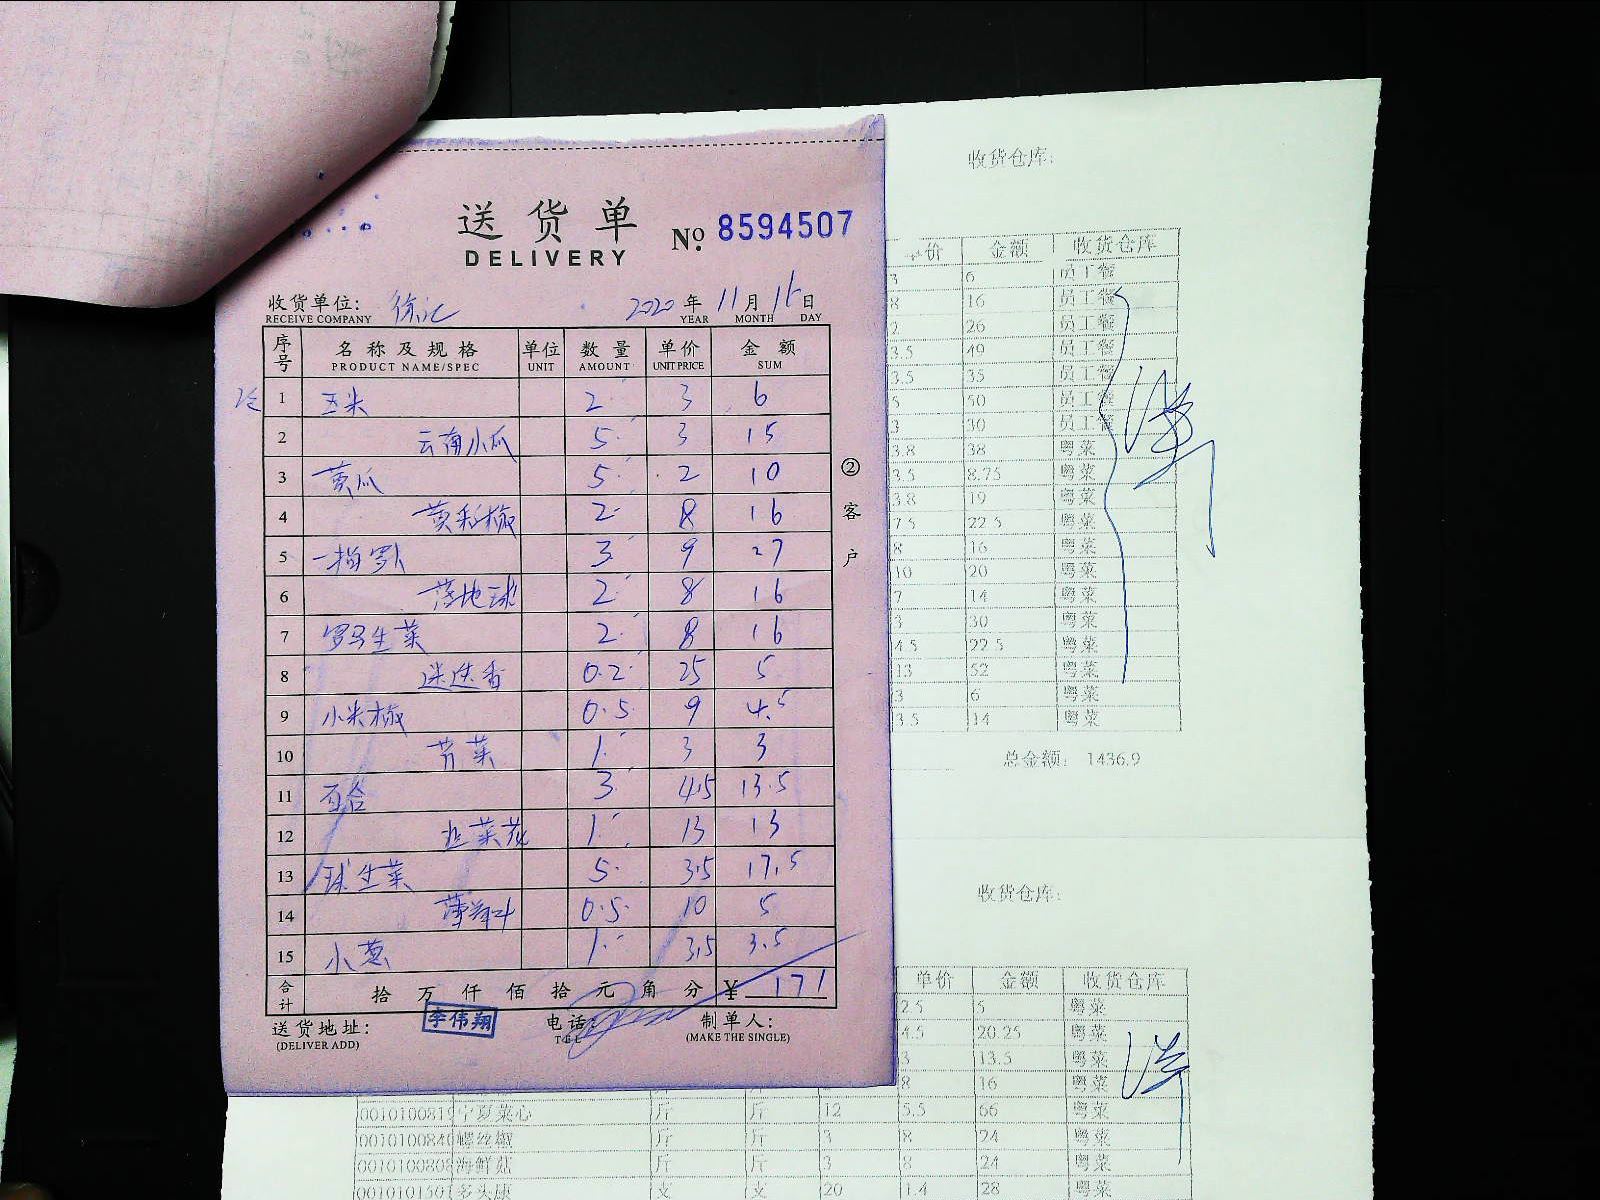 送货单
DELIVERY
No. 8594507
收货单位: 徐汇 2020 年 11 月 15 日
RECEIVE COMPANY YEAR MONTH DAY
序号 名称及规格 单位 数量 单价 金额
PRODUCT NAME/SPEC UNIT AMOUNT UNIT PRICE SUM
1 玉米 2 3 6
2 云南小瓜 5 3 15
3 黄瓜 5 2 10
4 黄彩椒 2 8 16
5 一指萝卜 3 9 27
6 落地球 2 8 16
7 罗马生菜 2 8 16
8 迷迭香 0.2 25 5
9 小米椒 0.5 9 4.5
10 芹菜 1 3 3
11 百合 3 4.5 13.5
12 韭菜花 1 13 13
13 球生菜 5 3.5 17.5
14 薄荷叶 0.5 10 5
15 小葱 1 3.5 3.5
合计 拾 万 仟 佰 拾 元 角 分 ¥ 171
送货地址: 李伟翔 电话: 制单人:
(DELIVER ADD) TEL (MAKE THE SINGLE)
② 客户
收货仓库:
价 金额 收货仓库
3 6 员工餐
8 16 员工餐
2 26 员工餐
3.5 49 员工餐
3.5 35 员工餐
5 50 员工餐
3 30 员工餐
3.8 38 粤菜
3.5 8.75 粤菜
3.8 19 粤菜
7.5 22.5 粤菜
8 16 粤菜
10 20 粤菜
7 14 粤菜
3 30 粤菜
4.5 22.5 粤菜
13 52 粤菜
3 6 粤菜
3.5 14 粤菜
总金额: 1436.9
收货仓库:
单价 金额 收货仓库
2.5 5 粤菜
4.5 20.25 粤菜
3 13.5 粤菜
8 16 粤菜
0010100819 宁夏菜心 斤 斤 12 5.5 66 粤菜
001010084 螺丝椒 斤 斤 3 8 24 粤菜
001010080 海鲜菇 斤 斤 3 8 24 粤菜
001010150 多头康 支 支 20 1.4 28 粤菜